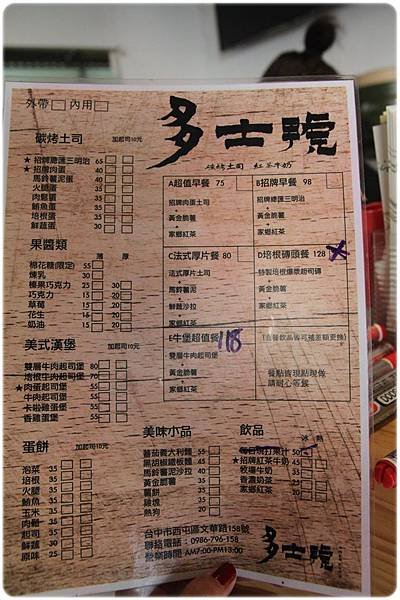 外帶 內用
多士號
碳烤土司 紅茶牛奶
碳烤土司 加起司10元
★招牌總匯三明治 65
★招牌肉蛋 40
馬鈴薯泥蛋 40
火腿蛋 35
肉鬆蛋 35
鮪魚蛋 35
培根蛋 35
鮮蔬蛋 30
果醬類 薄 厚
棉花糖(限定) 55
煉乳 30
榛果巧克力 25 30
巧克力 15 20
草莓 15 20
花生 15 20
奶油 15 20
美式漢堡 加起司10元
雙層牛肉起司堡 80
培根牛肉起司堡 70
★肉蛋起司堡
牛肉起司堡
卡啦雞蛋堡
香雞蛋堡
蛋餅 加起司10元
泡菜 35
培根 35
火腿 35
鮪魚 35
玉米 35
肉鬆 35
起司 35
鮮蔬 30
原味 25
A超值早餐 75
招牌肉蛋土司
+
黃金脆薯
+
家鄉紅茶
B招牌早餐 98
招牌總匯三明治
+
黃金脆薯
+
家鄉紅茶
C法式厚片餐 80
法式厚片土司
+
馬鈴薯泥
+
鮮蔬沙拉
+
家鄉紅茶
D培根磚頭餐 128
特製培根爆漿起司磚
+
黃金脆薯
+
家鄉紅茶
E牛堡超值餐 118
雙層牛肉起司堡
+
黃金脆薯
+
家鄉紅茶
(套餐飲品皆可補差額更換)
餐點皆現點現做
請耐心等候
美味小品
蕃茄義大利麵 55
黑胡椒鐵板麵 45
馬鈴薯泥沙拉 40
黃金脆薯 35
薯餅
雞塊
熱狗 20
飲品 冰 熱
每日現打果汁 50
★招牌紅茶牛奶 35
牧場牛奶 30
香濃奶茶 25
家鄉紅茶 20
台中市西屯區文華路158號
聯絡電話：0986-796-158
營業時間 AM7:00-PM13:00
多士號